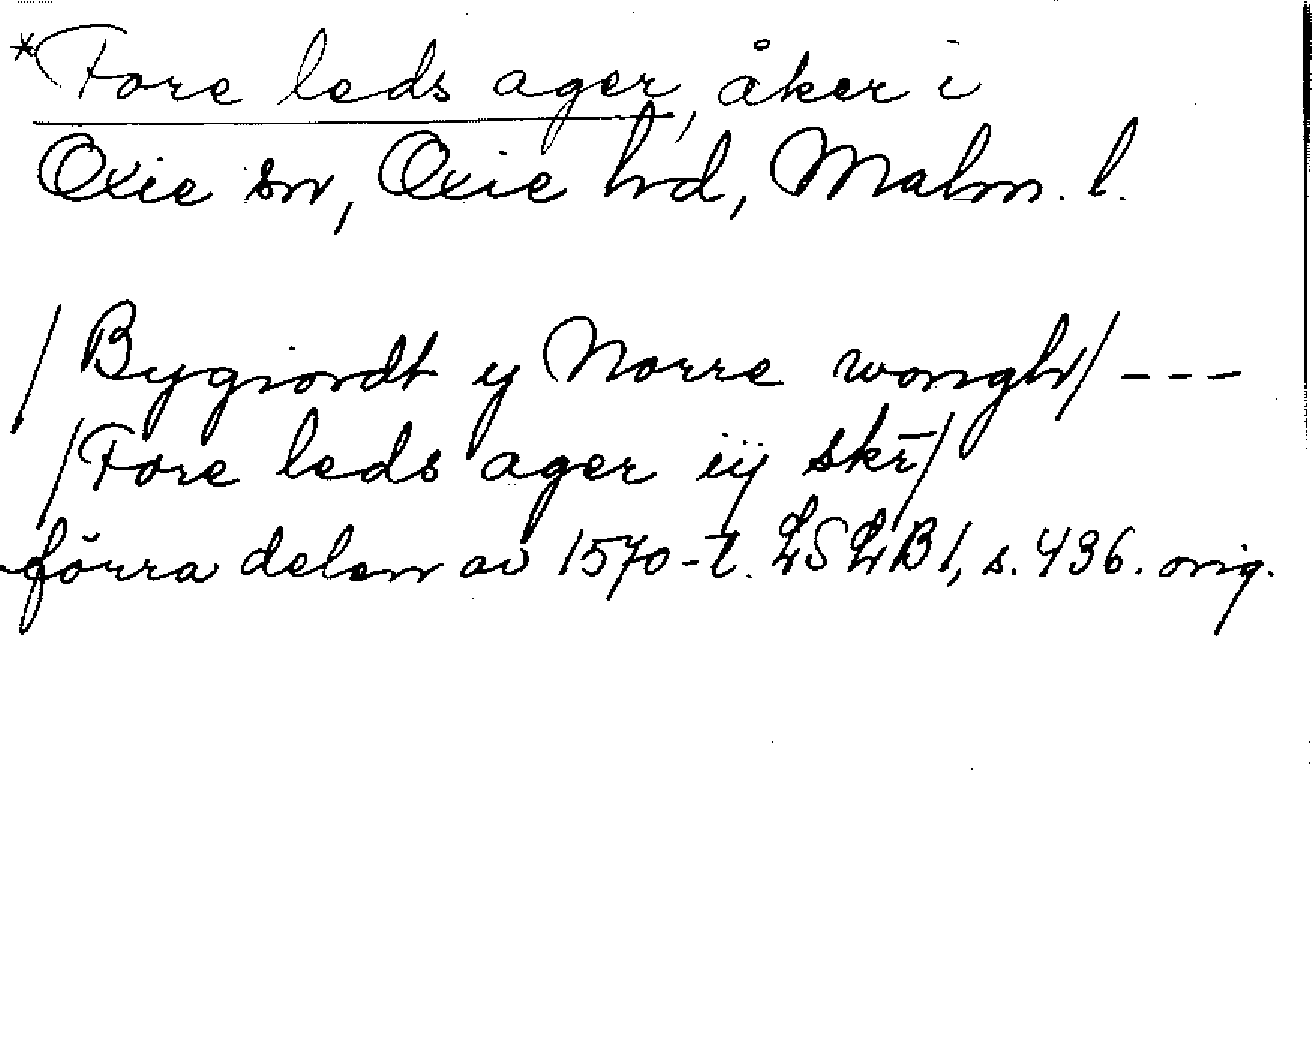 *Fore leds ager, åker i
Oxie sn, Oxie hd, Malm. l.
/Bygiordt y Norre wongh/ ---
/Fore leds ager iij skr̄/
förra delen av 1570-t. LSLB1, s. 436. orig.